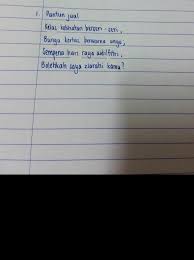 1. Pantun jual
Kelas kelihatan berseri-seri,
Bunga kertas berwarna ungu,
Sempena hari raya aidilfitri,
Bolehkah saya ziarahi kamu?